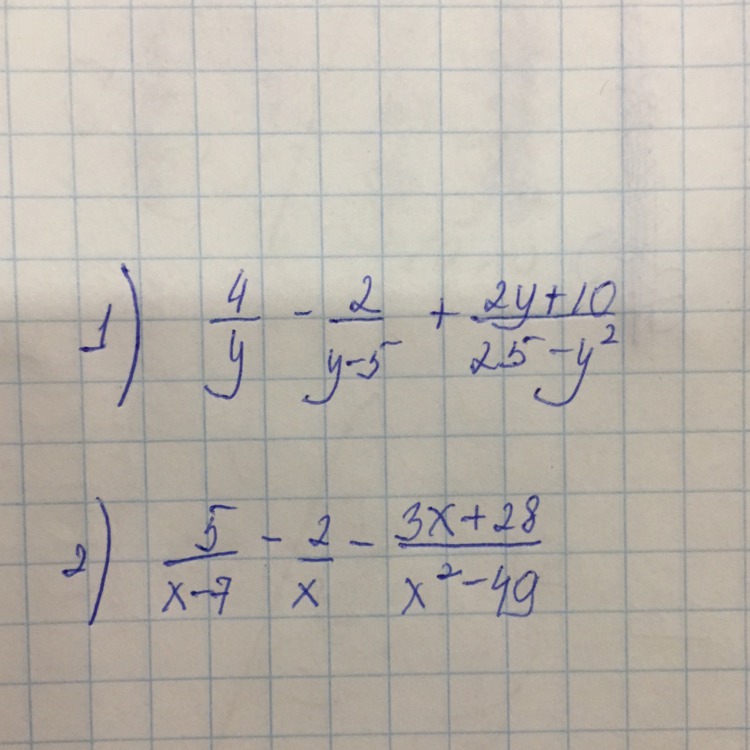 1) 4/y - 2/(y-5) + (2y+10)/(25-y²)
2) 5/(x-7) - 2/x - (3x+28)/(x²-49)